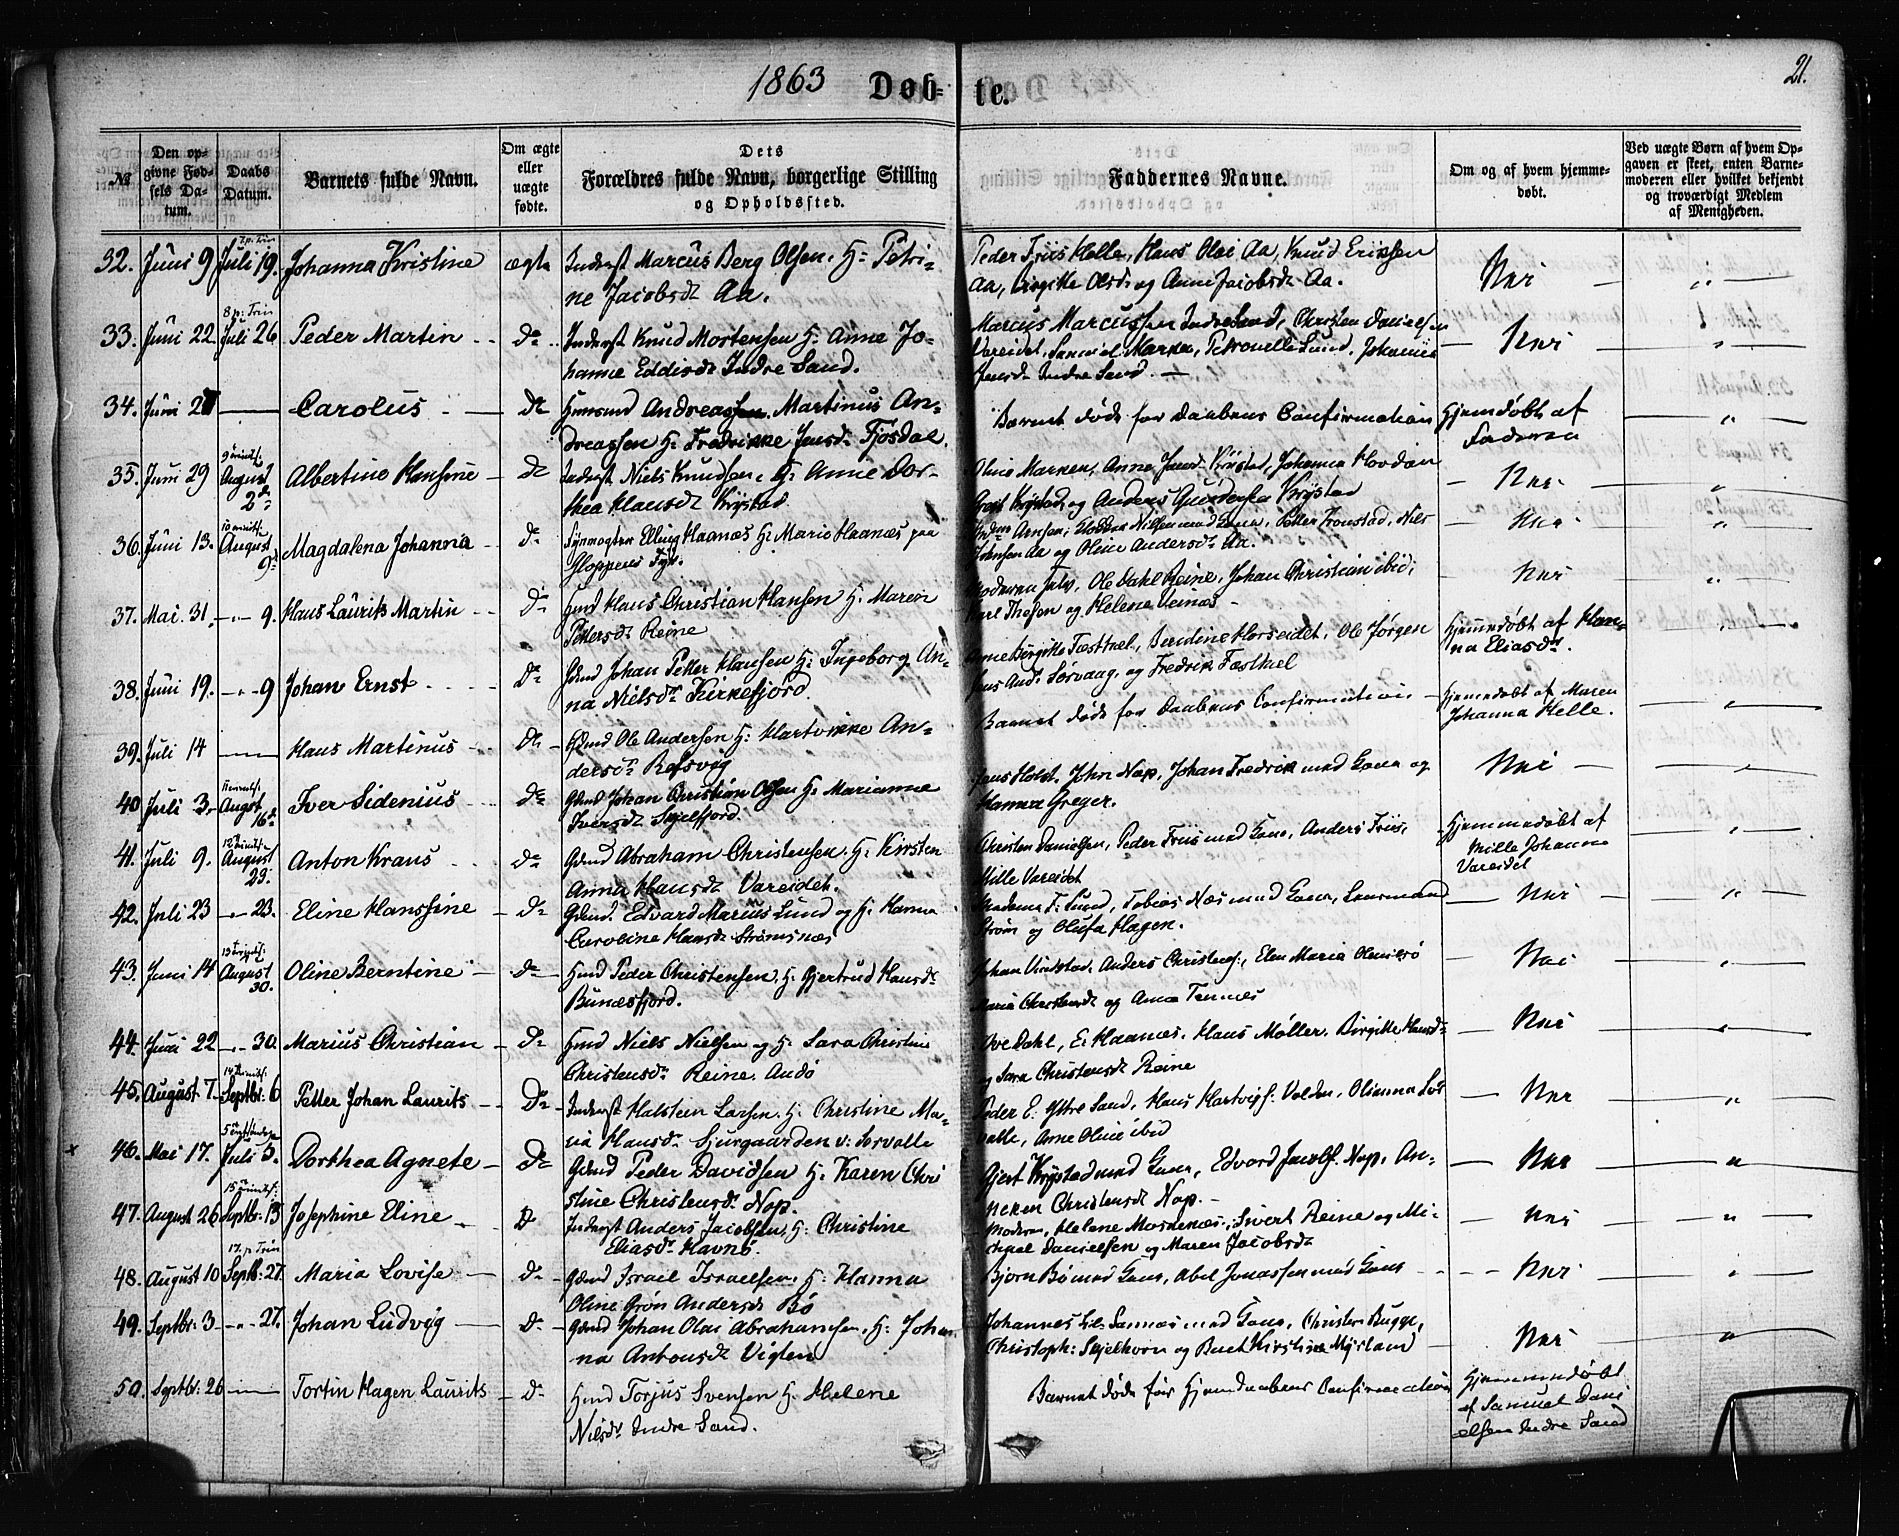 1863 Døb-te. 21.
№
Den opgivne Fødsels Datum.
Daabs Datum.
Barnets fulde Navn.
Om ægte eller uægte fødte.
Dets Forældres fulde Navn, borgerlige Stilling og Opholdssted.
Faddernes Navne.
Om og af hvem hjemmedøbt.
Ved uægte Børn af hvem Opgaven er skeet, enten Barnemoderen eller hvilket bekjendt og troværdigt Medlem af Menigheden.
32. Juni 9 Juli 19. Johanna Kristine ægte Inderst Marcus Berg Olsen, H: Petri-
ne Jacobsdr Aa.
Peder Friis Helle, Hans Olai Aa, Knud Eriksen
Aa, Birgitte Olsdr og Anne Jacobsdr Aa.
Nei
8 p: Trin
33. Juni 22. Juli 26 Peder Martin Do Inderst Knud Mortensen H: Anne Jo-
hanne Eddisdr Indre Sand.
Marcus Marcussen Indre Sand, Christen Danielsen
Vareidet, Samuel Marken, Petronelle Lund, Johanna
Jensdr Indre Sand.
Nei
34. Juni 27 — Carolus Do Huusmd Andreassen Martinus An-
dreassen H: Fredrikke Jensdr Fjøsdal.
Barnet døde før Daabens Confirmation
Hjemdøbt af
Faderen
35. Juni 29 August 2 Albertine Hansine Do Inderst Niels Knudsen, H: Anne Dor-
thea Hansdr Krystad
Oline Marken, Anne Jensd Krystad, Johanna Hovdan
Krystad og Anders Krystad
Nei
36. Juni 13. August 9 Magdalena Johanna Do Fyrvogter Elling Haanæs H: Marie Haanæs paa
Gloppens Fyr.
Johnsen Aa og Oline Andersdr Aa.
Nei
37. Mai 31. 9. Hans Laurits Martin Do Hmd Hans Christian Hansen H: Maren
Pettersdr Reine
Moderen selv, Ole Dahl Reine, Johan Christian ibid,
Karl Thesen og Helene Veinæs
Nei
38. Juni 19. 9 Johan Ernst Do Gmd Johan Petter Hansen H: Ingeborg An-
na Nielsdr Kirkefjord.
Anne Birgitte Tæsthæl, Berdine Horseidet, Ole Jørgen
Jens And. Sørvaag, og Fredrik Tæsthæl
Hjemmedøbt af Han-
na Eliasdr.
39. Juli 14 — Hans Martinus Do Gmd Ole Andersen H: Hartvikke An-
dersdr Refsvig
Barnet døde før Daabens Confirmation
Hjemmedøbt af Maren
Johanna Helle.
40 Juli 3. Augst 16 Iver Sidenius Do Gmd Johan Christian Olsen H: Marianne
Iversdr Skjelfjord.
Jens Holst, John Nap, Johan Fredrik med Kone og
Hanna Greger.
Nei
41. Juli 9. August 23. Anton Kraus Do Gmd Abraham Christensen H: Kirsten
Anna Hansdr Vareidet.
Christen Danielsen, Peder Friis med Kone, Anders Friis,
Mille Vareidet
Hjemmedøbt af
Mille Johanne
Vareidet
42. Juli 23 23. Eline Hanssine Do Gmd. Edvard Marius Lund og H: Hanna
Caroline Hansdr Strømsnæs
Madame F: Lund, Tobias Næs med Kone, Lensmand
Strøm og Olufa Hagen.
Nei
43. Juni 14 August 30. Oline Berntine Do Hmd Peder Christensen, H: Gjertrud Hansdr
Bunæsfjord.
Johan Vindstad, Anders Christens:, Elen Maria Olenisø
Maria Christensdr og Anna Tennæs
Nei
44. Juni 22 30. Marius Christian Do Hmd Niels Nielsen og H: Sara Christine
Christensdr Reine. Andø
Ove Dahl, E: Haanæs, Hans Møller, Birgitte Hansdr
og Sara Christensdr Reine
Nei
45. August 7 Septbr: 6 Petter Johan Laurits Do Inderst Halstein Larsen H: Christine Ma-
ria Hansdr Sjurgaarden v: Sørvalle
Peder E: Yttre Sand, Hans Hartvigs: Volden, Olianna Sør
valle, Anne Oline ibid
Nei
x 46. Mai 17. Juli 5. Dorthea Agnete Do Gmd Peder Davidsen H: Karen Chri
stine Christensdr Nap.
Gjert Krystad med Kone, Edvard Jacobs: Nap, An-
neken Christensdr Nap.
Nei
47. August 26 Septbr: 13 Josephine Eline Do Inderst Anders Jacobsen, H: Christine
Eliasdr Havnø.
Moderen, Helene Moskenæs, Sivert Reine og Mi-
chael Danielsen og Maren Jacobsdr
Nei
17. p: Trin
48. August 10 Septb: 27. Maria Lovise Do Gmd Israel Israelsen, H: Hanna
Oline Grøn Andersdr Bø
Bjørn Bø med Kone, Abel Jonassen med Kone
Nei
49. Septbr: 3 27. Johan Ludvig Do Gmd Johan Olai Abrahamsen, H: Johan
na Antonsdr Vigten
Johannes Lil: Sannæs med Kone, Christen Bugge,
Christoph: Skjelhorn og Buet Kirstine Myrland
Nei
50. Septbr: 26 — Tortin Hagen Laurits Do Hmd Torjus Svensen H: Helene
Nilsdr Indre Sand.
Barnet døde før Hjemdaabens Confirmation
Hjemmedøbt
af Samuel Dani
elsen Indre Sand